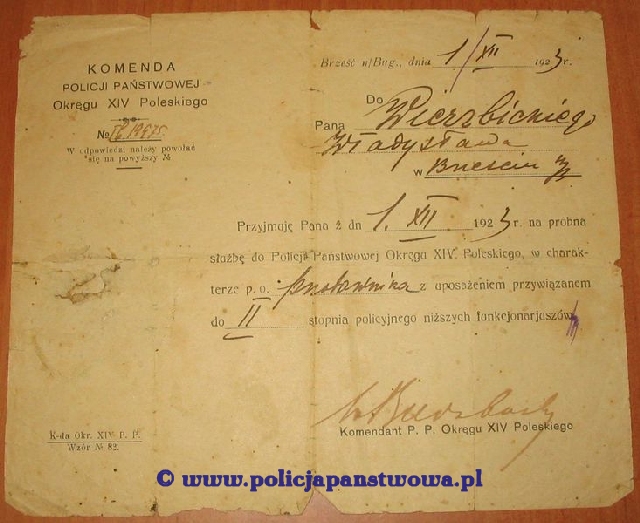 KOMENDA
POLICJI PAŃSTWOWEJ
Okręgu XIV Poleskiego
№
W odpowiedzi należy powołać
się na powyższy №
Brześć n/Bug., dnia 1/XII 1923 r.
Do
Pana Wierzbickiego
Władysława
w Brześciu n/B
Przyjmuję Pana z dn 1. XII 1923 r. na próbną
służbę do Policji Państwowej Okręgu XIV. Poleskiego, w charak-
terze p. o. z uposażeniem przywiązanem
do II stopnia policyjnego niższych funkcjonarjuszów
Komendant P. P. Okręgu XIV Poleskiego
K-da Okr. XIV P. P.
Wzór № 82
© www.policjapanstwowa.pl